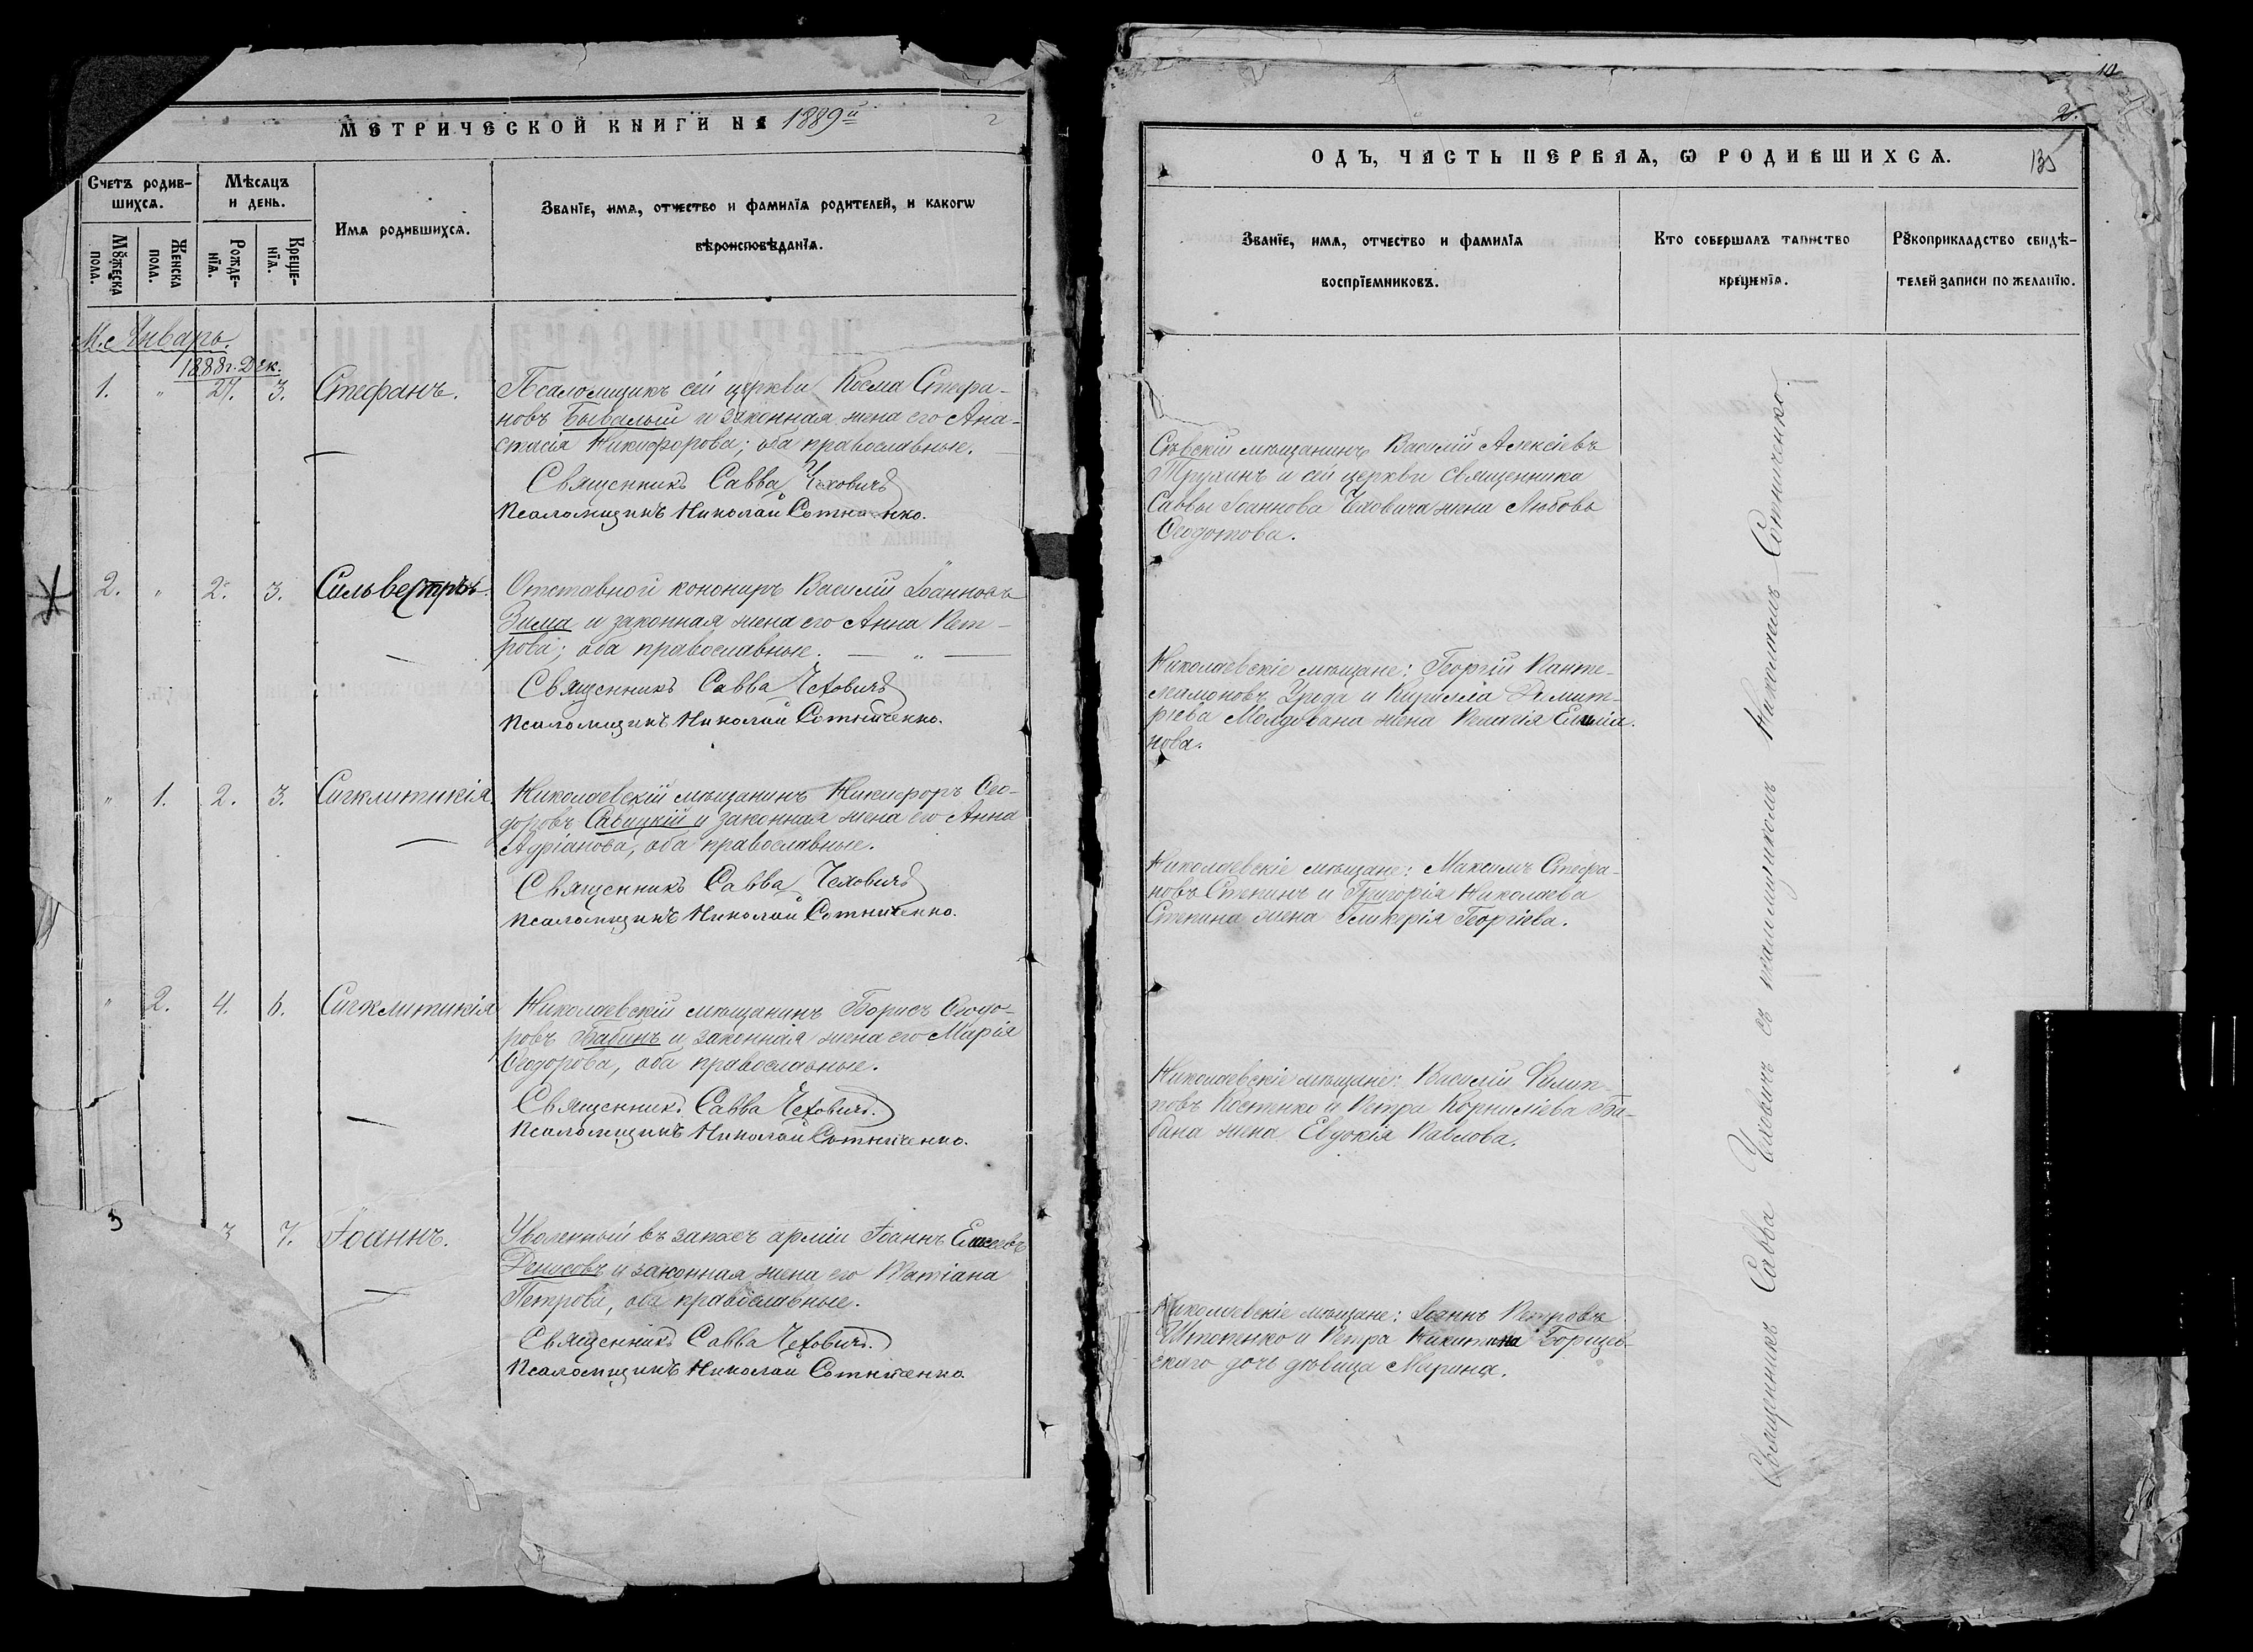 МЕТРИЧЕСКОЙ КНИГИ НА 1889й
2
Счетъ родив-
шихсѧ.
Мѣсѧцъ
и день.
Имѧ родившихсѧ.
Званїе, имѧ, отчество и фамилїѧ родителей, и какогѡ
вѣроисповѣданїѧ.
Мꙋжеска
пола.
Женска
пола.
Рожде-
нїѧ.
Креще-
нїѧ.
М.с Январь.
1888 г. Дек.
1. " 27. 3. Стефанъ. Псаломщикъ сей церкви Косма Стефа-
новъ Бывалый и законная жена его Ана-
стасія Никифорова; оба православные.
Священникъ Савва Чеховичъ
Псаломщикъ Николай Сотниченко.
2. " 2. 3. Сильвестръ. Отставной конониръ Василій Іоанновъ
Зима и законная жена его Анна Пет-
рова; оба православные. — " —
Священникъ Савва Чеховичъ
Псаломщикъ Николай Сотниченко.
" 1. 2. 3. Сигклитикія. Николаевскій мѣщанинъ Никифоръ Ѳео-
доровъ Савицкій и законная жена его Анна
Адріанова, оба православные.
Священникъ Савва Чеховичъ
Псаломщикъ Николай Сотниченко.
" 2. 4. 6. Сигклитикія Николаевскій мѣщанинъ Борисъ Ѳеодо-
ровъ Бабинъ и законная жена его Марія
Ѳеодорова, оба православные.
Священникъ Савва Чеховичъ.
Псаломщикъ Николай Сотниченко.
3 3 7. Іоаннъ. Уволенный въ запасъ арміи Іоаннъ Елисеевъ
Денисовъ и законная жена его Татіана
Петрова, оба православные.
Священникъ Савва Чеховичъ.
Псаломщикъ Николай Сотниченко.
10
2.
ОДЪ, ЧАСТЬ ПЕРВАѦ, Ѡ РОДИВШИХСѦ.
135
Званїе, имѧ, отчество и фамилїѧ
воспрїемниковъ.
Кто совершалъ таинство
крещенїѧ.
Рꙋкоприкладство свидѣ-
телей записи по желанїю.
Сѣвскій мѣщанинъ Василій Алексіевъ
Трухинъ и сей церкви Священника
Саввы Іоаннова Чеховича жена Любовь
Ѳеодотова.
Николаевскіе мѣщане: Георгій Панте-
леимоновъ Урода и Кирилла Димит-
ріева Молдована жена Пелагія Емиліа-
нова.
Николаевскіе мѣщане: Максимъ Стефа-
новъ Стенинъ и Григорія Николаева
Стенина жена Гликерія Георгіева.
Николаевскіе мѣщане: Василій Филип-
повъ Костенко и Петра Корниліева Ба-
бина жена Евдокія Павлова.
Николаевскіе мѣщане: Іоаннъ Петровъ
и Петра Никитина Борищев-
скаго дочь дѣвица Марина.
Священникъ Савва Чеховичъ съ псаломщикомъ Николаемъ Сотниченко.